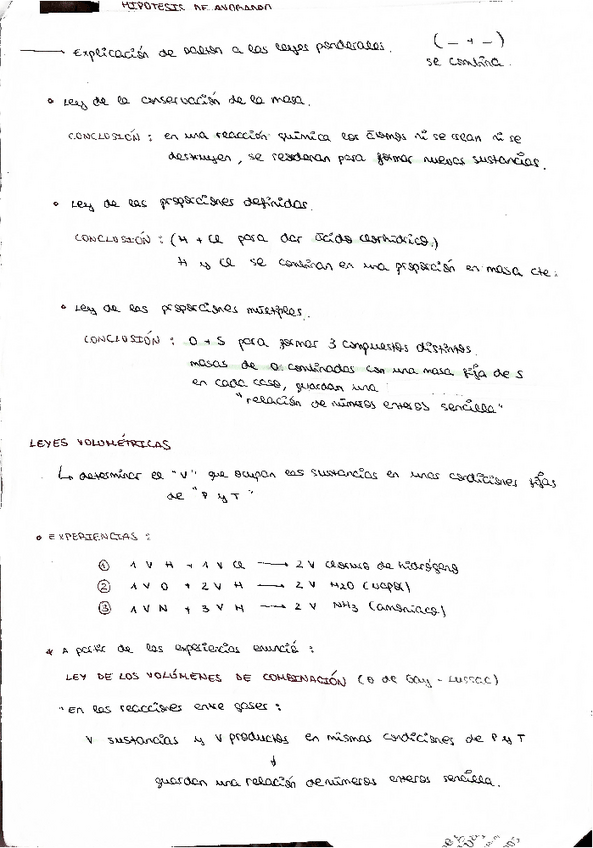 HIPOTESIS DE AVOGADRO
→ Explicación de Dalton a las leyes ponderales. ( _ + _ )
se combina.
• Ley de la conservación de la masa.
CONCLUSIÓN : en una reacción química los átomos ni se crean ni se
destruyen, se reordenan para formar nuevas sustancias.
• Ley de las proporciones definidas.
CONCLUSIÓN : (H + Cl para dar ácido clorhídrico.)
H y Cl se combinan en una proporción en masa cte.
• Ley de las proporciones múltiples.
CONCLUSIÓN : O + S para formar 3 compuestos distintos.
masas de O combinadas con una masa fija de S
en cada caso, guardan una
"relación de números enteros sencilla"
LEYES VOLUMÉTRICAS
↳ determinar el "V" que ocupan las sustancias en unas condiciones fijas
de "P y T"
• EXPERIENCIAS :
① 1 V H + 1 V Cl → 2 V cloruro de hidrógeno
② 1 V O + 2 V H → 2 V H2O (vapor)
③ 1 V N + 3 V H → 2 V NH3 (amoniaco)
* A partir de las experiencias enunció :
LEY DE LOS VOLÚMENES DE COMBINACIÓN (o de Gay - Lussac)
"En las reacciones entre gases :
V sustancias y V productos en mismas condiciones de P y T
↓
guardan una relación de números enteros sencilla.